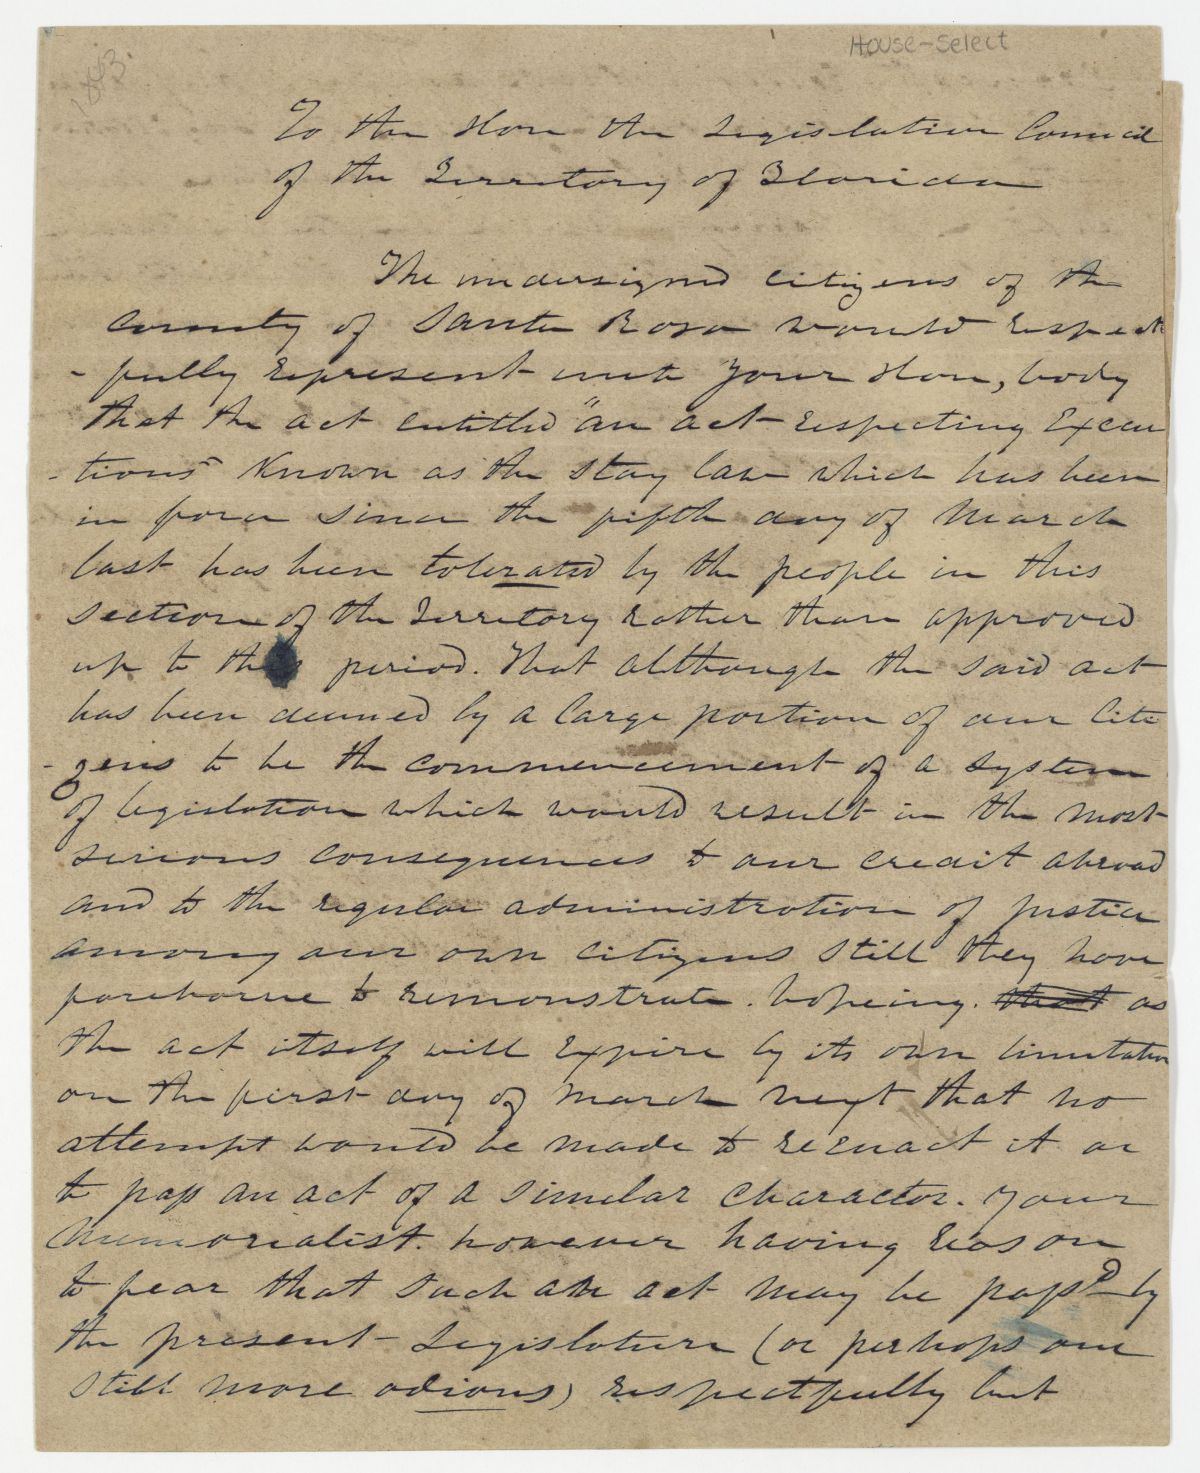 House-Select
1843.
To the Hon the Legislative Council
of the Territory of Florida
The undersigned citizens of the
County of Santa Rosa would respect
- fully represent unto your Hon, body
that the act entitled "an act respecting Execu
- tions" Known as the Stay law which has been
in force since the fifth day of March
last has been tolerated by the people in this
section of the Territory rather than approved
up to this period. That although the said act
has been deemed by a large portion of our Citi
- zens to be the commencement of a system
of legislation which would result in the most
serious consequences to our credit abroad
and to the regular administration of justice
among our own citizens still they have
foreborne to remonstrate. hopeing. that as
the act itself will expire by its own limitation
on the first day of March next that no
attempt would be made to reenact it or
to pass an act of a similar character. Your
Memorialist. however having reason
to fear that such an act may be pass^d by
the present Legislature (or perhaps one
still more odious) respectfully but